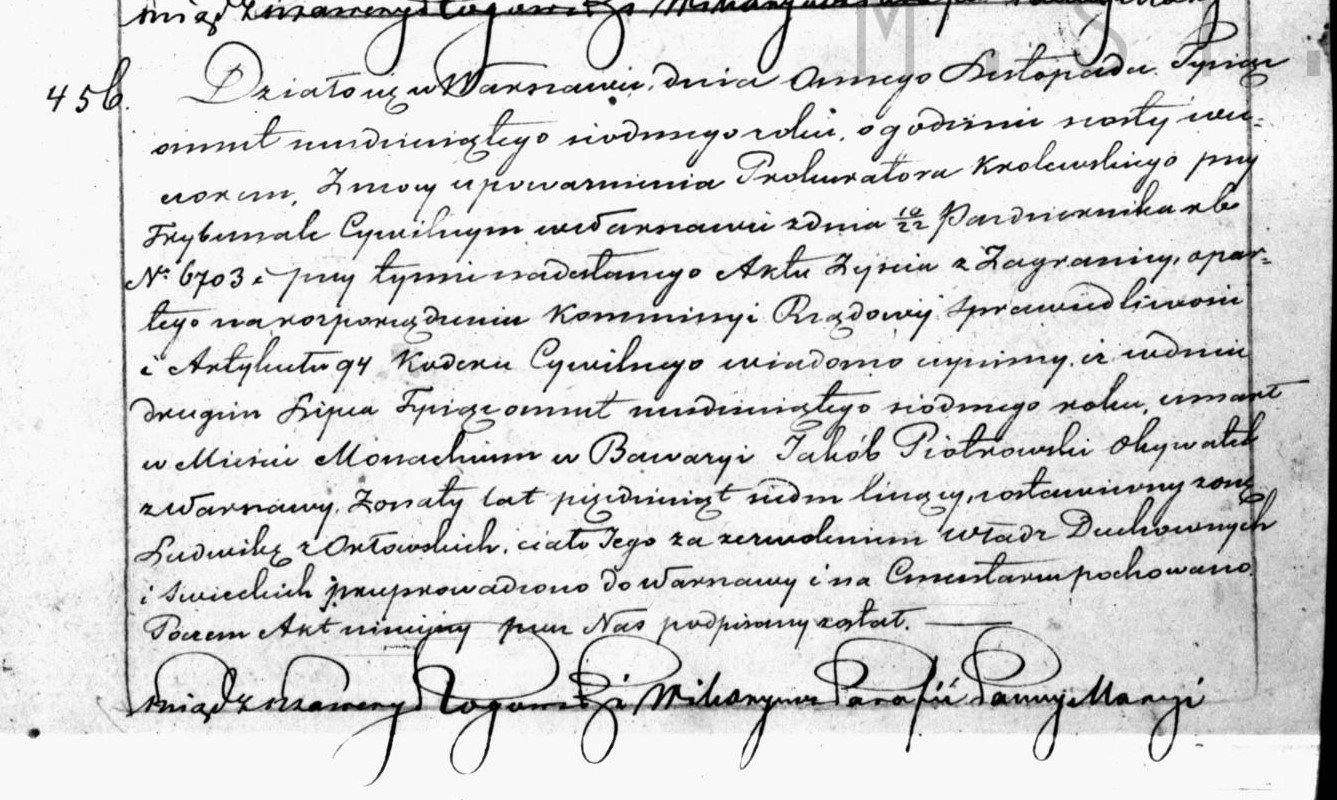 M . S .
456. Działo się w Warszawie, dnia Osmego Listopada Tysiąc
osmset pięćdziesiątego siodmego roku, o godzinie szosty wie=
czorem, Z mocy upoważnienia Prokuratora Krolewskiego przy
Trybunale Cywilnym w Warszawie z dnia 10/22 Pazdziernika rb
No 6703 i przy tymże nadesłanego Aktu Zejscia z Zagranicy, opar=
tego na rozporządzeniu Kommissyi Rządowej Sprawiedliwosci
i Artykułu 94 Kodexu Cywilnego wiadomo czynimy, iz w dniu
drugim Lipca Tysiąc osmset pięćdziesiątego siodmego roku, umarł
w Miescie Monachium w Bawaryi Jakób Piotrowski Obywatel
z Warszawy, Zonaty lat pięcdziesiąt siedm liczący, zostawiwszy zonę
Ludwikę z Orłowskich, ciało Jego za zezwoleniem Władz Duchownych
i Swieckich przeprowadzono do Warszawy i na Cmentarzu pochowano.
Poczem Akt niniejszy przez Nas podpisany został.
Xiądz Xawery Rogowski Wikaryusz Parafii Panny Maryi